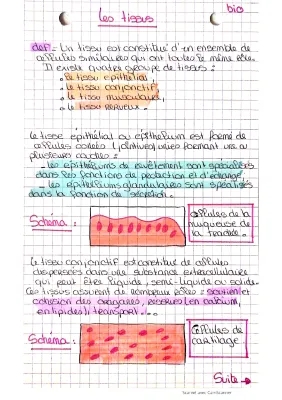 Les tissus
bio
def : Un tissu est constitué d'un ensemble de
cellules similaires qui ont toutes le même rôle.
Il existe quatre groupe de tissus :
le tissu épithélial,
le tissu conjonctif,
le tissu musculaire,
le tissu nerveux.
Le tissu épithélial ou épithélium est formé de
cellules collées (jointives) unies formant une ou
plusieurs couches :
- les épithéliums de revêtement sont spécialisés
dans les fonctions de protection et d'échange,
- les épithéliums glandulaires sont spécialisés
dans la fonction de sécrétion.
Schéma :
cellules de la
muqueuse de
la trachée.
Le tissu conjonctif est constitué de cellules
dispersées dans une substance extracellulaire
qui peut être liquide, semi-liquide ou solide.
Ces tissus assurent de nombreux rôles : soutien et
cohésion des organes, réserves (en calcium,
en lipides), transport...
Schéma :
Cellules de
cartilage.
Suite →